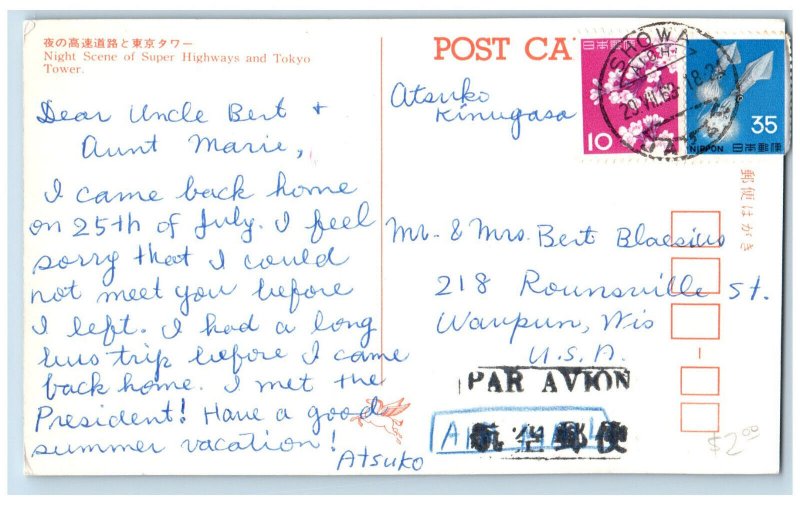 夜の高速道路と東京タワー
Night Scene of Super Highways and Tokyo
Tower.
POST CA
Dear Uncle Bert &
Aunt Marie,
I came back home
on 25th of July. I feel
sorry that I could
not meet you before
I left. I had a long
bus trip before I came
back home. I met the
President! Have a good
summer vacation!
Atsuko
Atsuko
Kinugasa
日本郵便
10
SHOWA
20.VII.68.18-24
35
NIPPON 日本郵便
郵便はがき
Mr. & Mrs. Bert Blaesius
218 Rounsville St.
Waupun, Wis
U.S.A.
PAR AVION
航空郵便
$2.00